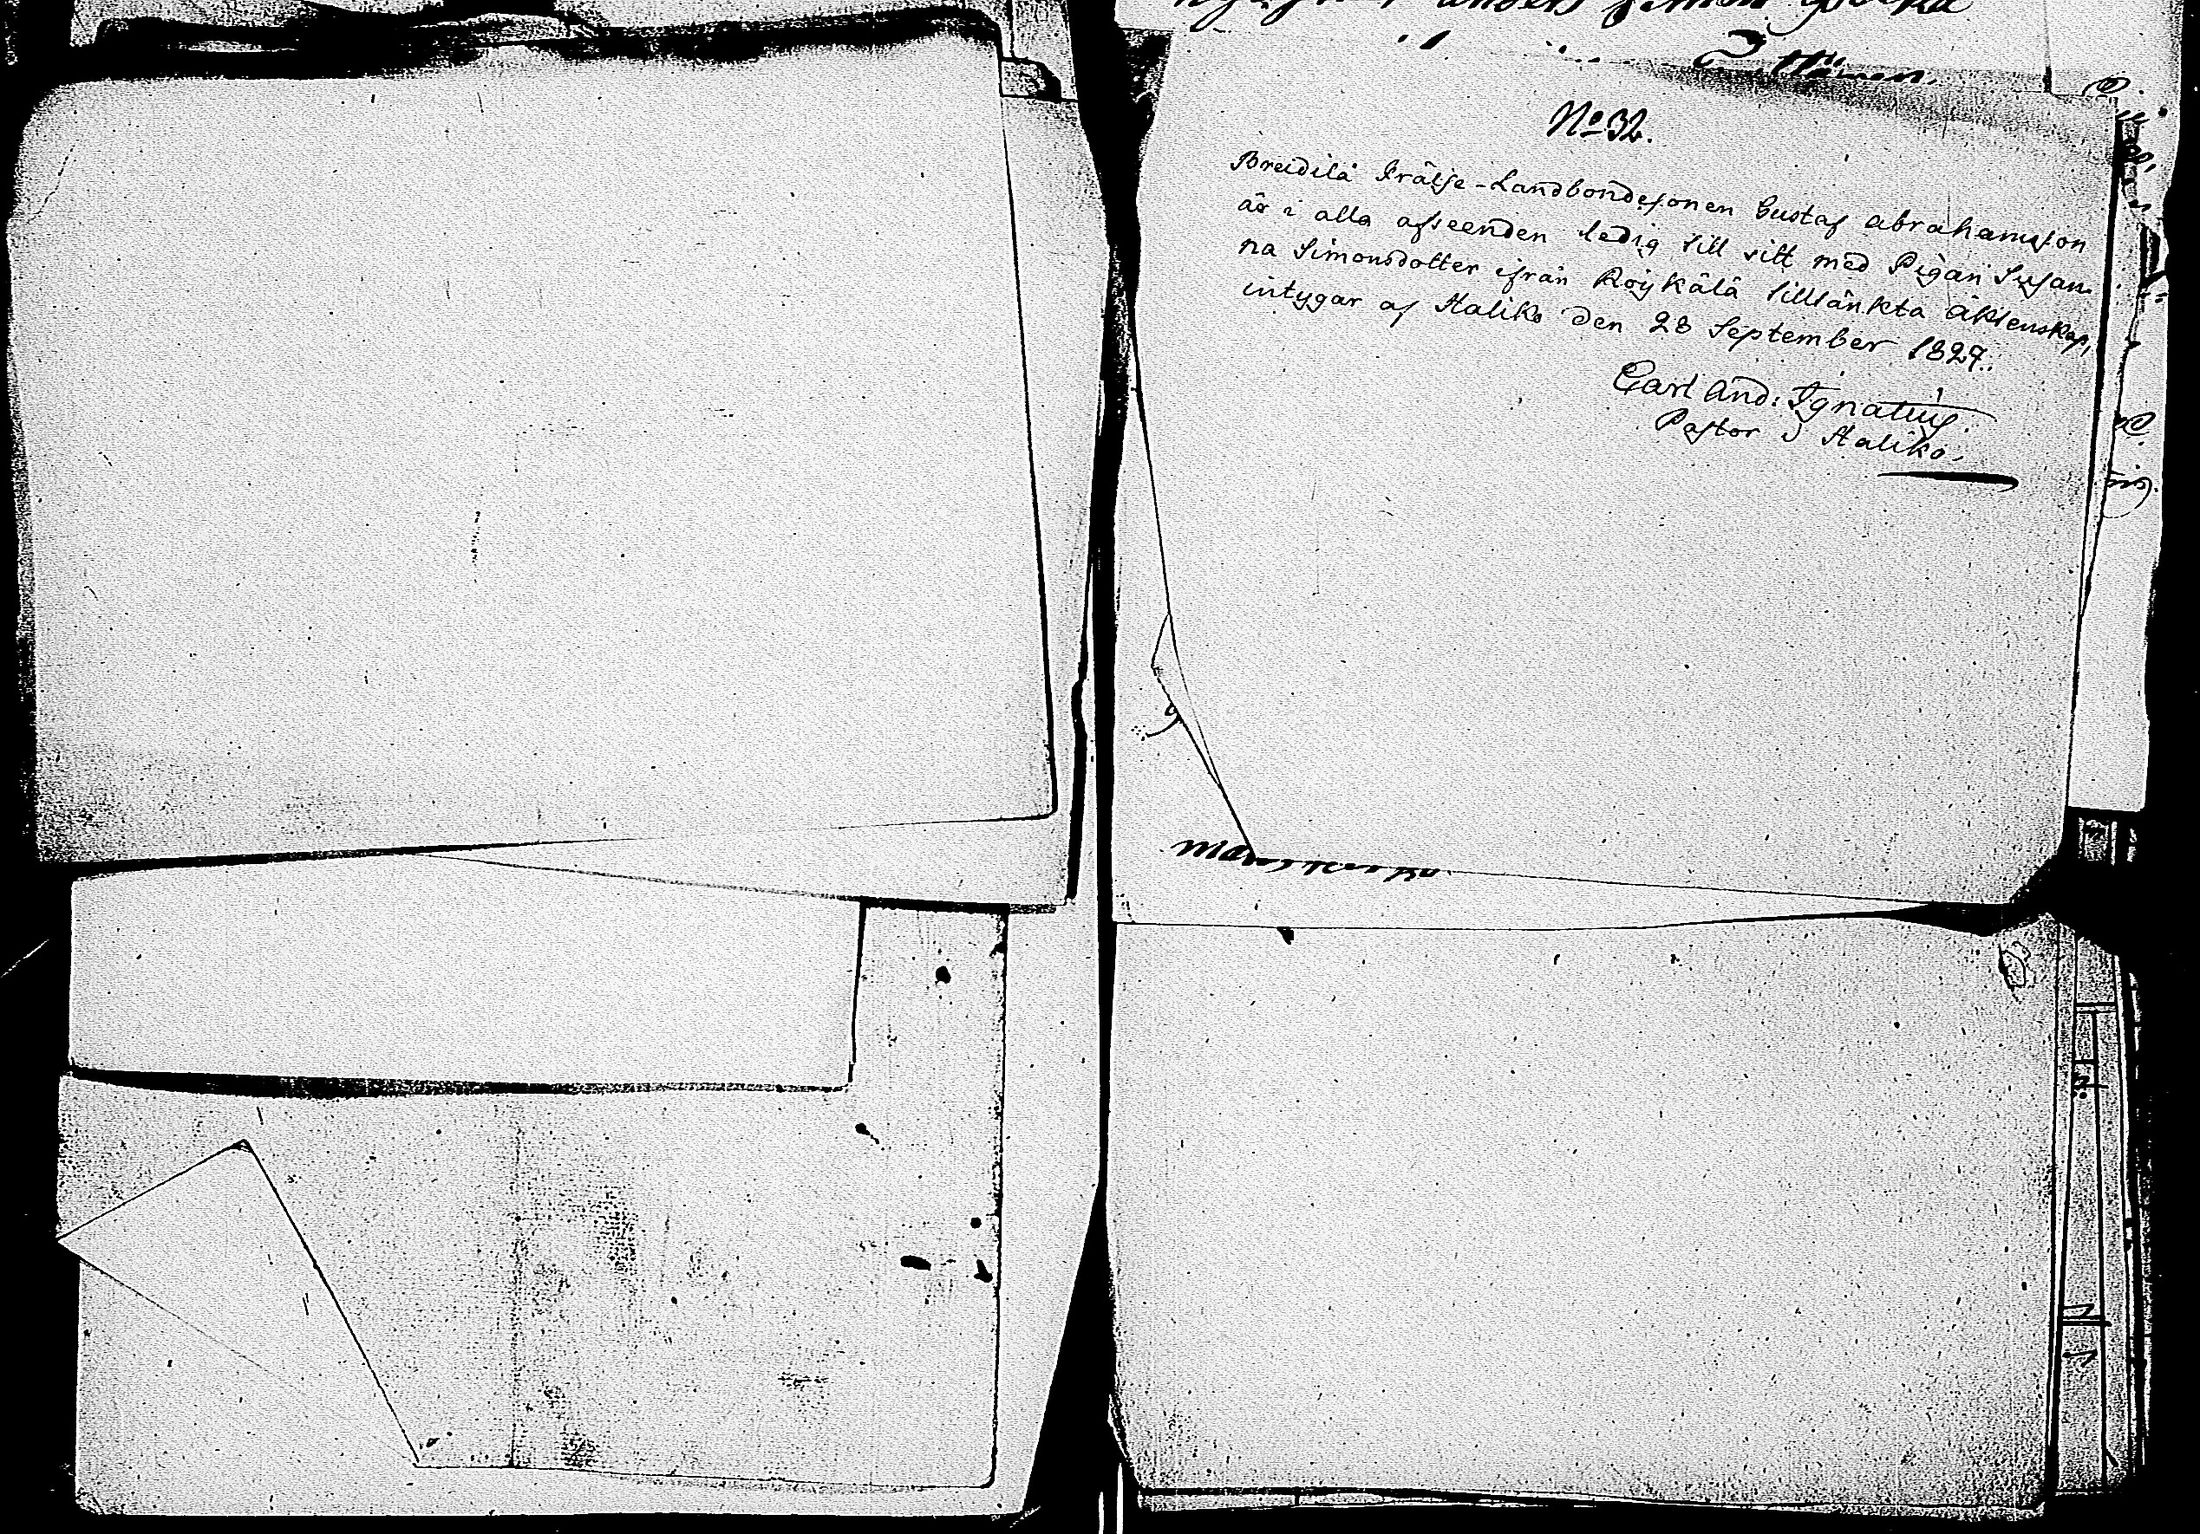 No 32.
Breidilä Frälse-Landbondesonen Gustaf Abrahamsson
är i alla afseenden ledig till sitt med Pigan Susan-
na Simonsdotter ifrån Röykälä tilltänkta Äktenskap,
intygar af Haliko den 28 September 1829.
Carl And: Ignatius.
Pastor i Haliko.